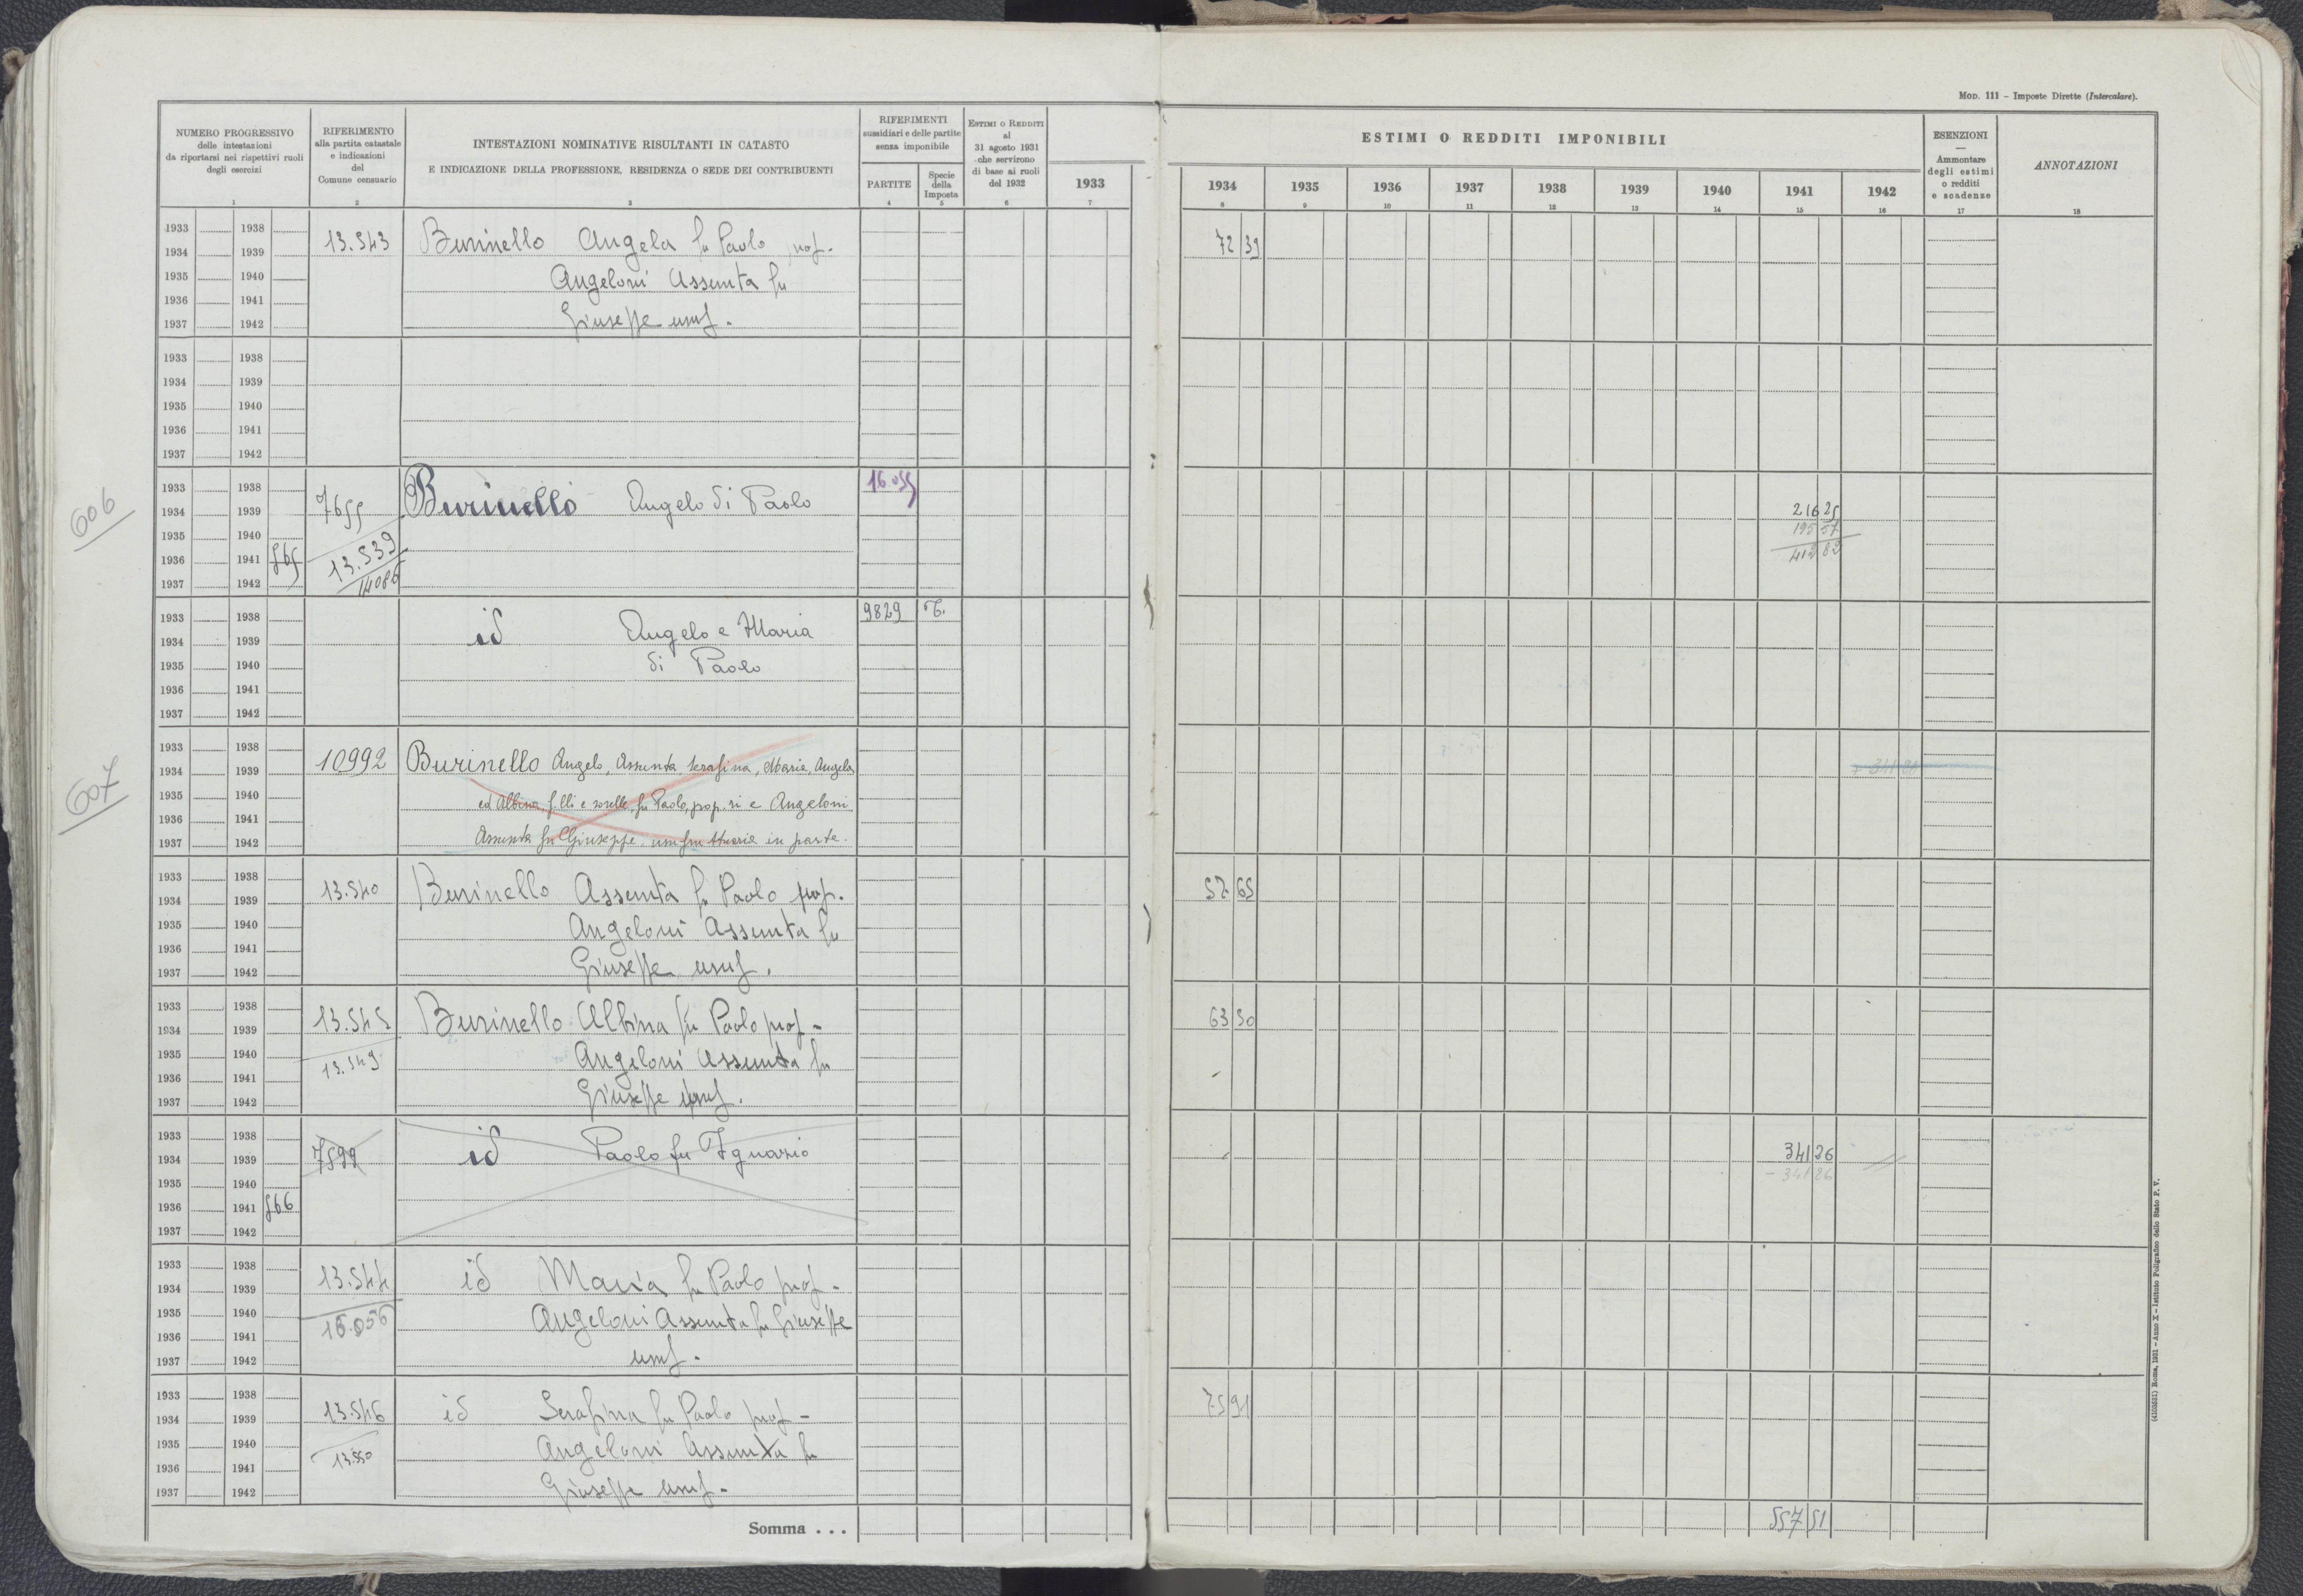 MOD. 111 – Imposte Dirette (Intercalare).
NUMERO PROGRESSIVO
delle intestazioni
da riportarsi nei rispettivi ruoli
degli esercizi
1
RIFERIMENTO
alla partita catastale
e indicazioni
del
Comune censuario
2
INTESTAZIONI NOMINATIVE RISULTANTI IN CATASTO
E INDICAZIONE DELLA PROFESSIONE, RESIDENZA O SEDE DEI CONTRIBUENTI
3
RIFERIMENTI
sussidiari e delle partite
senza imponibile
PARTITE
4
Specie
della
Imposta
5
ESTIMI O REDDITI
al
31 agosto 1931
che servirono
di base ai ruoli
del 1932
6
ESTIMI O REDDITI IMPONIBILI
1933 1934 1935 1936 1937 1938 1939 1940 1941 1942
7 8 9 10 11 12 13 14 15 16
ESENZIONI
—
Ammontare
degli estimi
o redditi
e scadenze
17
ANNOTAZIONI
18
1933 1938
1934 1939 13.543 Burinello Angela fu Paolo, prop. 72 39
1935 1940 Angeloni Assunta fu
1936 1941
1937 1942 Giuseppe usuf.
1933 1938
1934 1939
1935 1940
1936 1941
1937 1942
606
1933 1938 16.055
1934 1939 7655 Burinello Angelo di Paolo 216 25
1935 1940 195 57
1936 1941 565 13.539 412 82
1937 1942 14086
1933 1938 9829 T.
1934 1939 id Angelo e Maria
1935 1940 di Paolo
1936 1941
1937 1942
607
1933 1938
1934 1939 10992 Burinello Angelo, Assunta, Serafina, Maria, Angela + 341 26
1935 1940 ed Albina f.lli e sorelle fu Paolo, prop. ri e Angeloni
1936 1941
1937 1942 Assunta fu Giuseppe. usufruttuaria in parte.
1933 1938
1934 1939 13.540 Burinello Assunta fu Paolo prop. 57 65
1935 1940 Angeloni Assunta fu
1936 1941
1937 1942 Giuseppe usuf.
1933 1938
1934 1939 13.545 Burinello Albina fu Paolo prop. 63 30
1935 1940 13.549 Angeloni Assunta fu
1936 1941
1937 1942 Giuseppe usuf.
1933 1938
1934 1939 7599 id Paolo fu Ignazio 341 26
1935 1940 – 341 26
1936 1941 566
1937 1942
1933 1938
1934 1939 13.544 id Maria fu Paolo prop.
1935 1940 16.056 Angeloni Assunta fu Giuseppe
1936 1941
1937 1942 usuf.
1933 1938
1934 1939 13.546 id Serafina fu Paolo prop. 75 91
1935 1940 13.550 Angeloni Assunta fu
1936 1941
1937 1942 Giuseppe usuf.
Somma . . . 557 51
(4103551) Roma, 1931 – Anno X – Istituto Poligrafico dello Stato P. V.